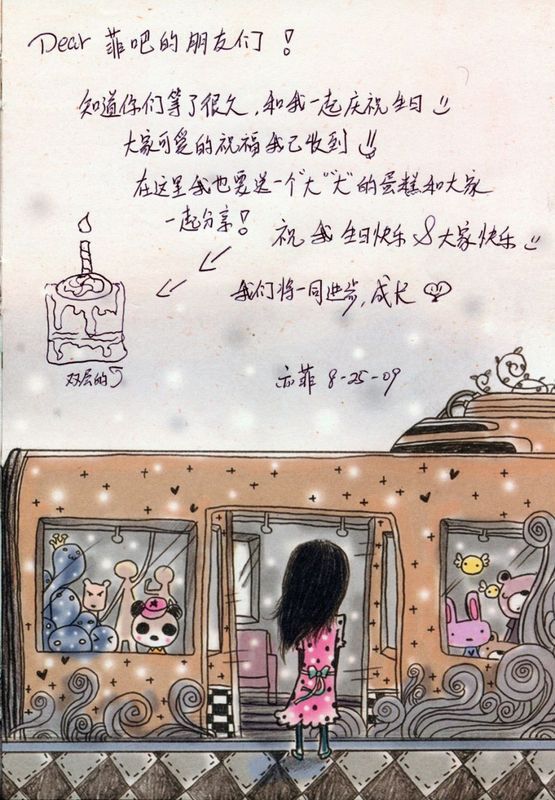 Dear 菲吧的朋友们!
知道你们等了很久,和我一起庆祝生日
大家可爱的祝福我已收到!!
在这里我也要送一个"大"的蛋糕和大家
一起分享!
祝我生日快乐&大家快乐
我们将一同进步,成长
双层的
亦菲 8-25-09